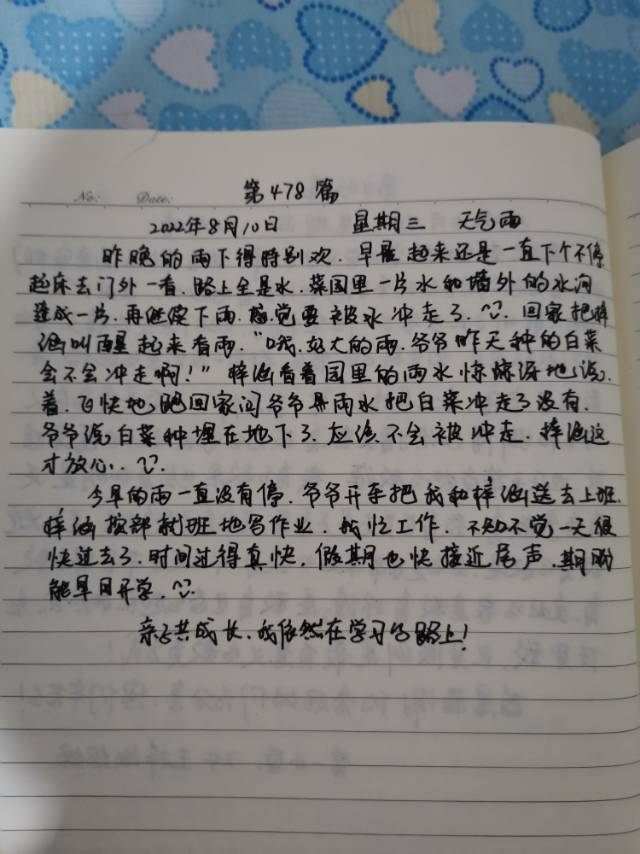 第478篇
No: Date:
2022年8月10日 星期三 天气雨
昨晚的雨下得特别欢.早晨起来还是一直下个不停
起床去门外一看.路上全是水.菜园里一片水和墙外的水沟
连成一片.再继续下雨.感觉要被水冲走了.回家把梓
涵叫醒起来看雨."哦.好大的雨.爷爷昨天种的白菜
会不会冲走啊!"梓涵看着园里的雨水惊讶地说
着.飞快地跑回家问爷爷雨水把白菜冲走了没有.
爷爷说白菜种埋在地下了.应该不会被冲走.梓涵这
才放心.
今早的雨一直没有停.爷爷开车把我和梓涵送去上班.
梓涵按部就班地写作业.我忙工作.不知不觉一天很
快过去了.时间过得真快.假期也快接近尾声.期盼
能早日开学.
亲子共成长.我依然在学习的路上!